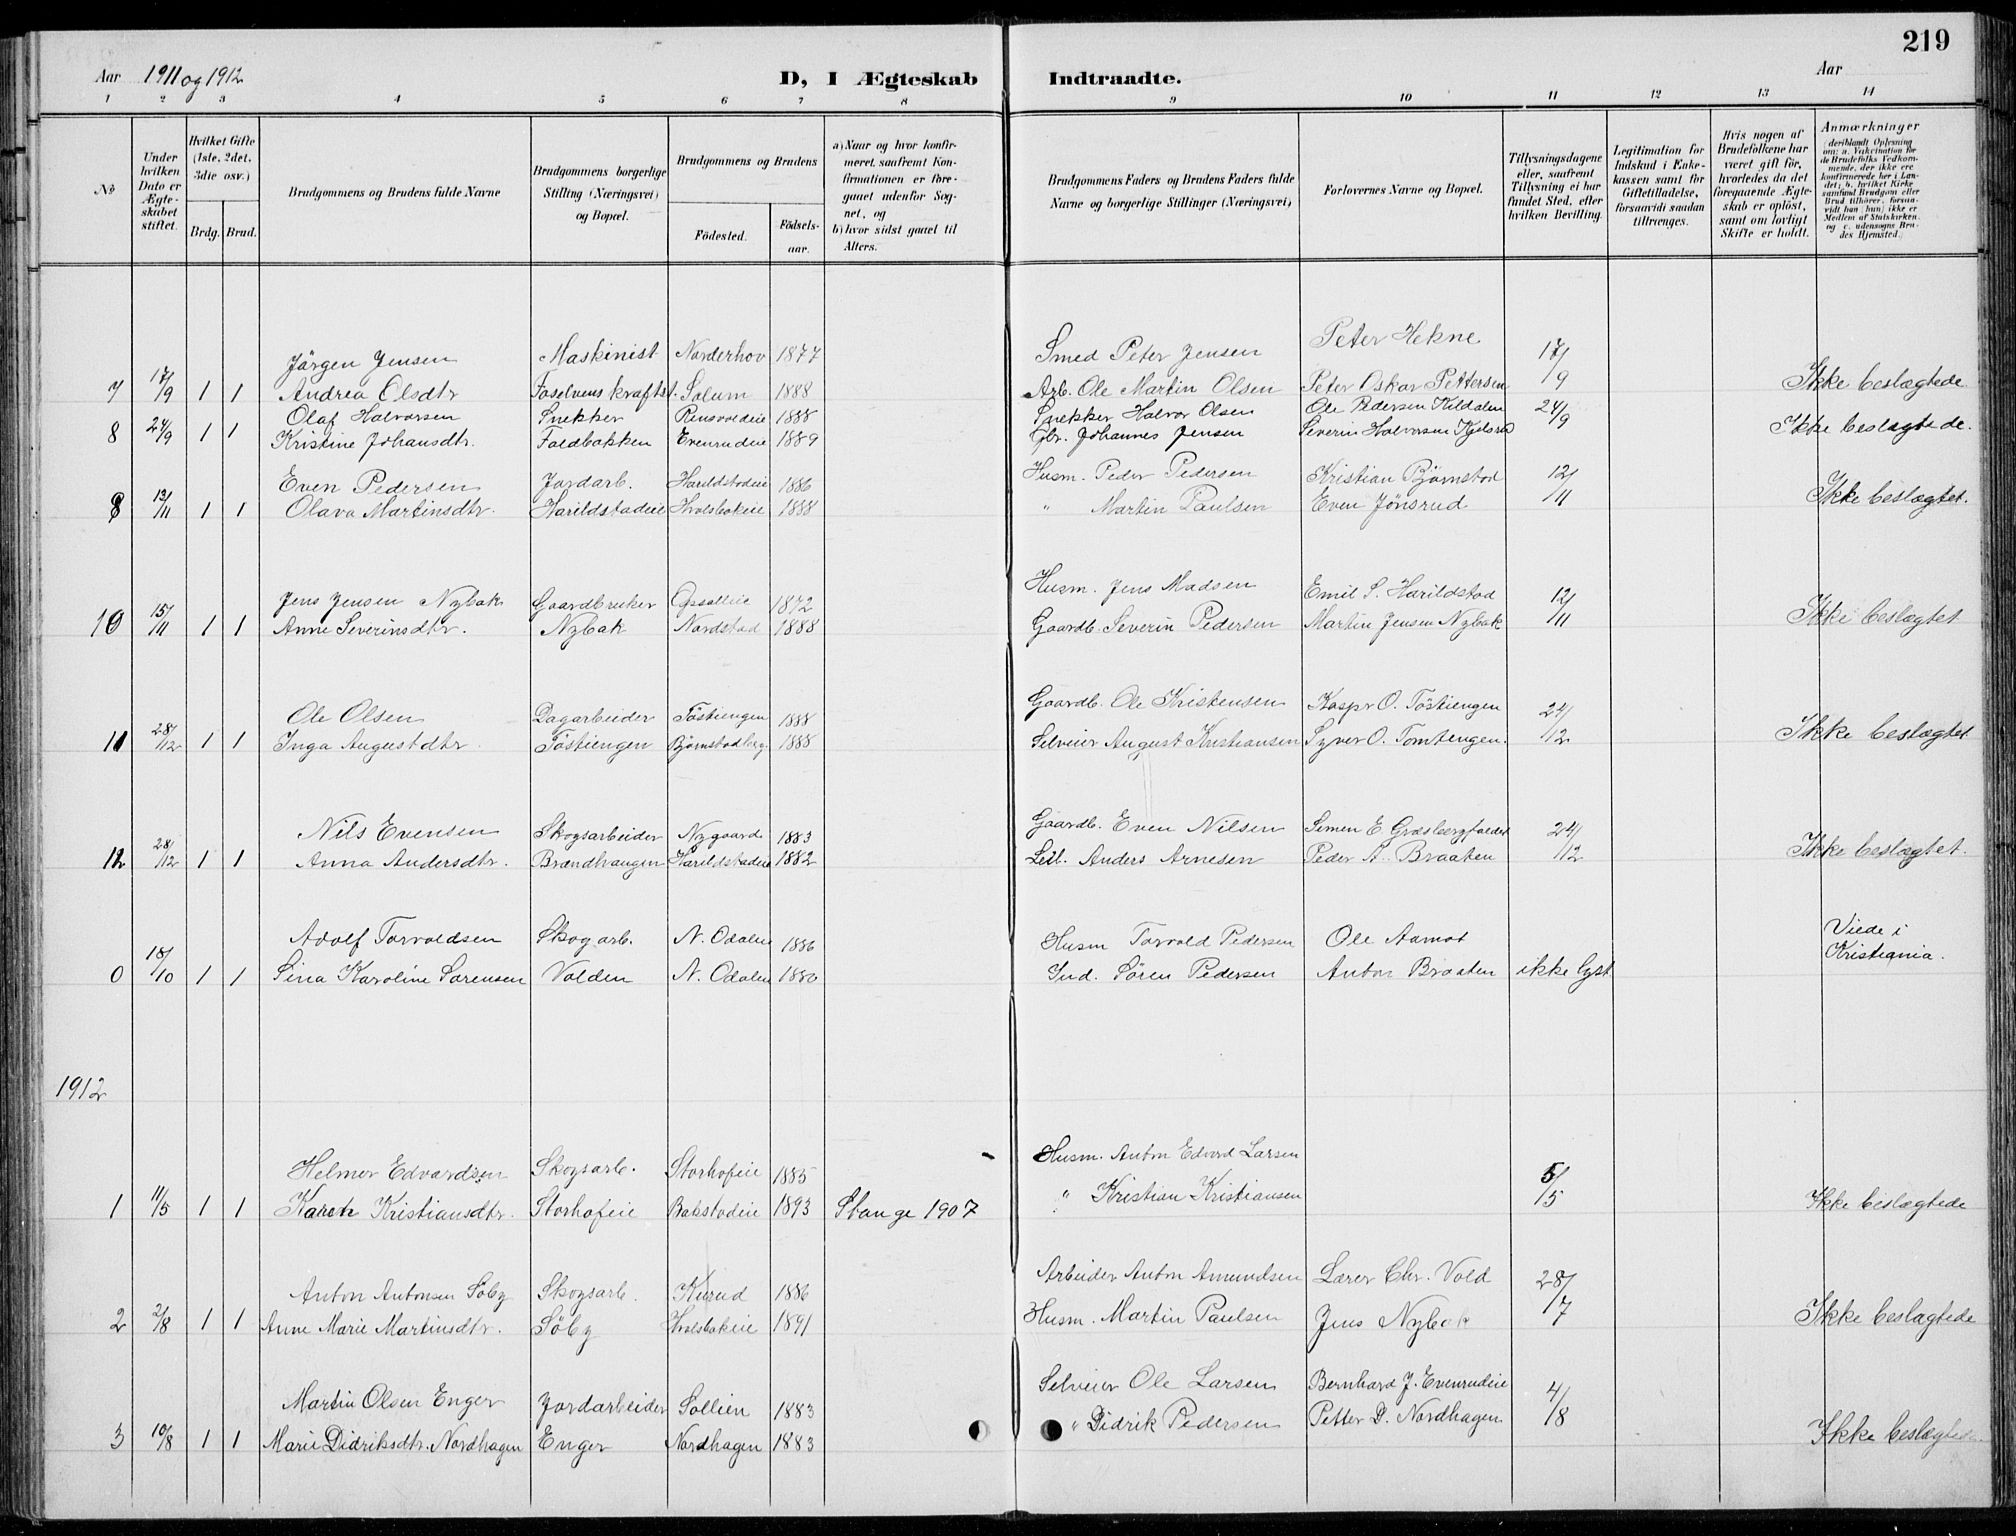 219
Aar 1911 og 1912
D, I Ægteskab Indtraadte.
Aar
1 2 3 4 5 6 7 8 9 10 11 12 13 14
No
Under hvilken Dato er Ægteskabet stiftet.
Hvilket Gifte (1ste, 2det, 3die osv.)
Brdg. Brud.
Brudgommens og Brudens fulde Navne
Brudgommens borgerlige Stilling (Næringsvei) og Bopæl.
Brudgommens og Brudens
Födested.
Födselsaar.
a) Naar og hvor konfirmeret, saafremt Konfirmationen er foregaaet udenfor Sognet, og
b) hvor sidst gaaet til Alters.
Brudgommens Faders og Brudens Faders fulde Navne og borgerlige Stillinger (Næringsvei)
Forlovernes Navne og Bopæl.
Tillysningsdagene eller, saafremt Tillysning ei har fundet Sted, efter hvilken Bevilling.
Legitimation for Indskud i Enkekassen samt for Giftetilladelse, forsaavidt saadan tiltrænges.
Hvis nogen af Brudefolkene har været gift før, hvorledes da det foregaaende Ægteskab er oplöst, samt om lovligt Skifte er holdt.
Anmærkninger (deriblandt Oplysning om: a. Vakcination for de Brudefolks Vedkommende, der ikke ere konfirmerede her i Landet; b. hvilket Kirkesamfund Brudgom eller Brud tilhörer, forsaavidt han (hun) ikke er Medlem af Statskirken, og c. udensogns Brudes Hjemsted.)
Jörgen Jensen Maskinist Norderhov 1877 Smed Peter Jensen Peter Hekne 17/
7 17/9 1 1 Andrea Olsdtr Foselvens kraftst. Solum 1888 Arb. Ole Martin Olsen Peter Oskar Pettersen 9 Ikke beslægtede
Olaf Halvorsen Snekker Rensvoldeie 1888 Snekker Halvor Olsen Ole Pedersen Kildalen 24/
8 24/9 1 1 Kristine Johansdtr. Foldbakken Evenrudeie 1889 Gbr. Johannes Jensen Severin Halvorsen 9 Ikke beslægtede.
Even Pedersen Jordarb. Harildstadeie 1886 Husm. Peder Pedersen Kristian Björnstad 12/
13/11 1 1 Olava Martinsdtr. Harildstadeie Hvolsbakeie 1888 " Martin Paulsen Even Jönsrud 11 Ikke beslægtet.
Jens Jensen Nybak Gaardbruker Opsalleie 1872 Husm. Jens Madsen Emil S. Harildstad 12/
10 15/11 1 1 Anne Severinsdtr. Nybak Nordstad 1888 Gaardb. Severin Pedersen Martin Jensen Nybak 11 Ikke beslægtet
Ole Olsen Dagarbeider Töstiengen 1888 Gaardb. Ole Kristensen Kaspr O. Töstiengen 24/
11 28/12 1 1 Inga Augustdtr. Töstiengen Björnstadberg. 1888 Selveier August Kristiansen Syver O. Tomtengen. 12 Ikke beslægtet
Nils Evensen Skogsarbeider Nygaard 1883 Gaardb. Even Nilsen Simen E. 24/
12 28/12 1 1 Anna Andersdtr. Brændhaugen Harildstadeie 1882 Leil. Anders Arnesen Peder A. Braaten 12 Ikke beslægtet.
Adolf Torvaldsen Skogarb. N. Odalen 1886 Husm Torvald Pedersen Ole Aamot Viede i
0 18/10 1 1 Sina Karoline Sorensen Volden N. Odalen 1880 Ind. Sören Pedersen Anton Braaten ikke lyst Kristiania.
1912
Helmer Edvardsen Skogsarb. Storhofeie 1885 Husm. Anton Edvard Larsen 5/
1 11/5 1 1 Karen Kristiansdtr. Storhofeie Bakstadeie 1893 Stange 1907 " Kristian Kristiansen 5 Ikke beslægtede
Anton Antonsen Söby Skogsarb. Kurud 1886 Arbeider Anton Amundsen Lærer Chr. Vold 28/
2 2/8 1 1 Anne Marie Martinsdtr. Söby Hvolsbakeie 1891 Husm. Martin Paulsen Jens Nybak 7 Ikke beslægtede
Martin Olsen Enger Jordarbeider Sollien 1883 Selveier Ole Larsen Bernhard J. Evenrudeie 4/
3 10/8 1 1 Marie Didriksdtr. Nordhagen Enger Nordhagen 1883 " Didrik Pedersen Petter D. Nordhagen 8 Ikke beslægtede